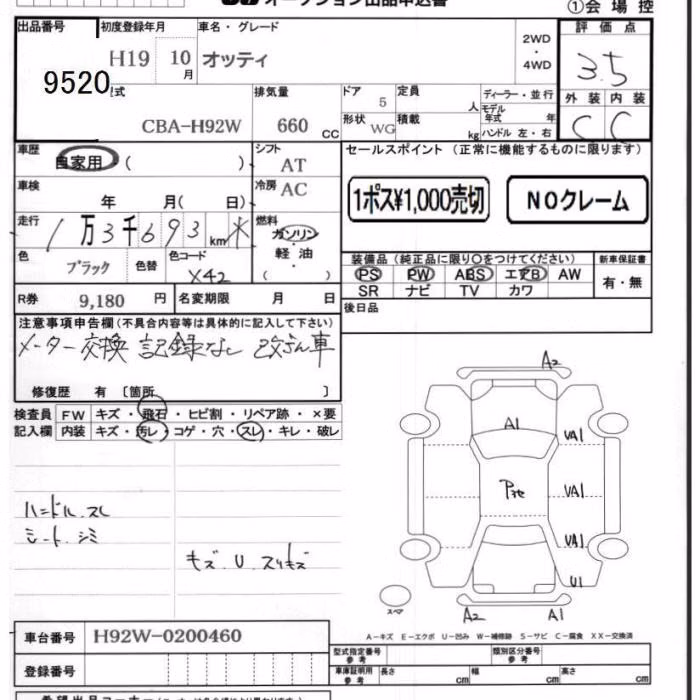 オークション出品申込書
①会場控
出品番号
9520
初度登録年月
H19 10月
車名・グレード
オッティ
2WD
・
4WD
評価点
3.5
型式
CBA-H92W
排気量
660 CC
ドア 5
形状 WG
定員 人
積載 kg
ディーラー・並行
モデル年式 年
ハンドル 左・右
外装 内装
C C
車歴
自家用 ( )
シフト
AT
車検
年 月( 日)
冷房 AC
走行
1万3千693km ※
燃料
ガソリン
軽・油
( )
色
ブラック
色替
色コード
X42
R券 9,180 円
名変期限 月 日
セールスポイント (正常に機能するものに限ります)
1ポス¥1,000売切
NOクレーム
装備品 (純正品に限り○をつけてください)
PS PW ABS エアB AW
SR ナビ TV カワ
新車保証書
有・無
後日品
注意事項申告欄(不具合内容等は具体的に記入して下さい)
メーター交換 記録なし 改ざん車
修復歴 有 〔箇所 〕
検査員
記入欄
FW キズ・飛石・ヒビ割・リペア跡・×要
内装 キズ・汚レ・コゲ・穴・スレ・キレ・破レ
ハンドル スレ
シート シミ
キズ U スリキズ
A2
A1
UA1
UA1
UA1
U1
スペア
A2
A1
A-キズ E-エクボ U-凹み W-補修跡 S-サビ C-腐食 XX-交換済
車台番号 H92W-0200460
登録番号
型式指定番号
参考
類別区分番号
参考
車庫証明用
参考
長さ cm
幅 cm
高さ cm